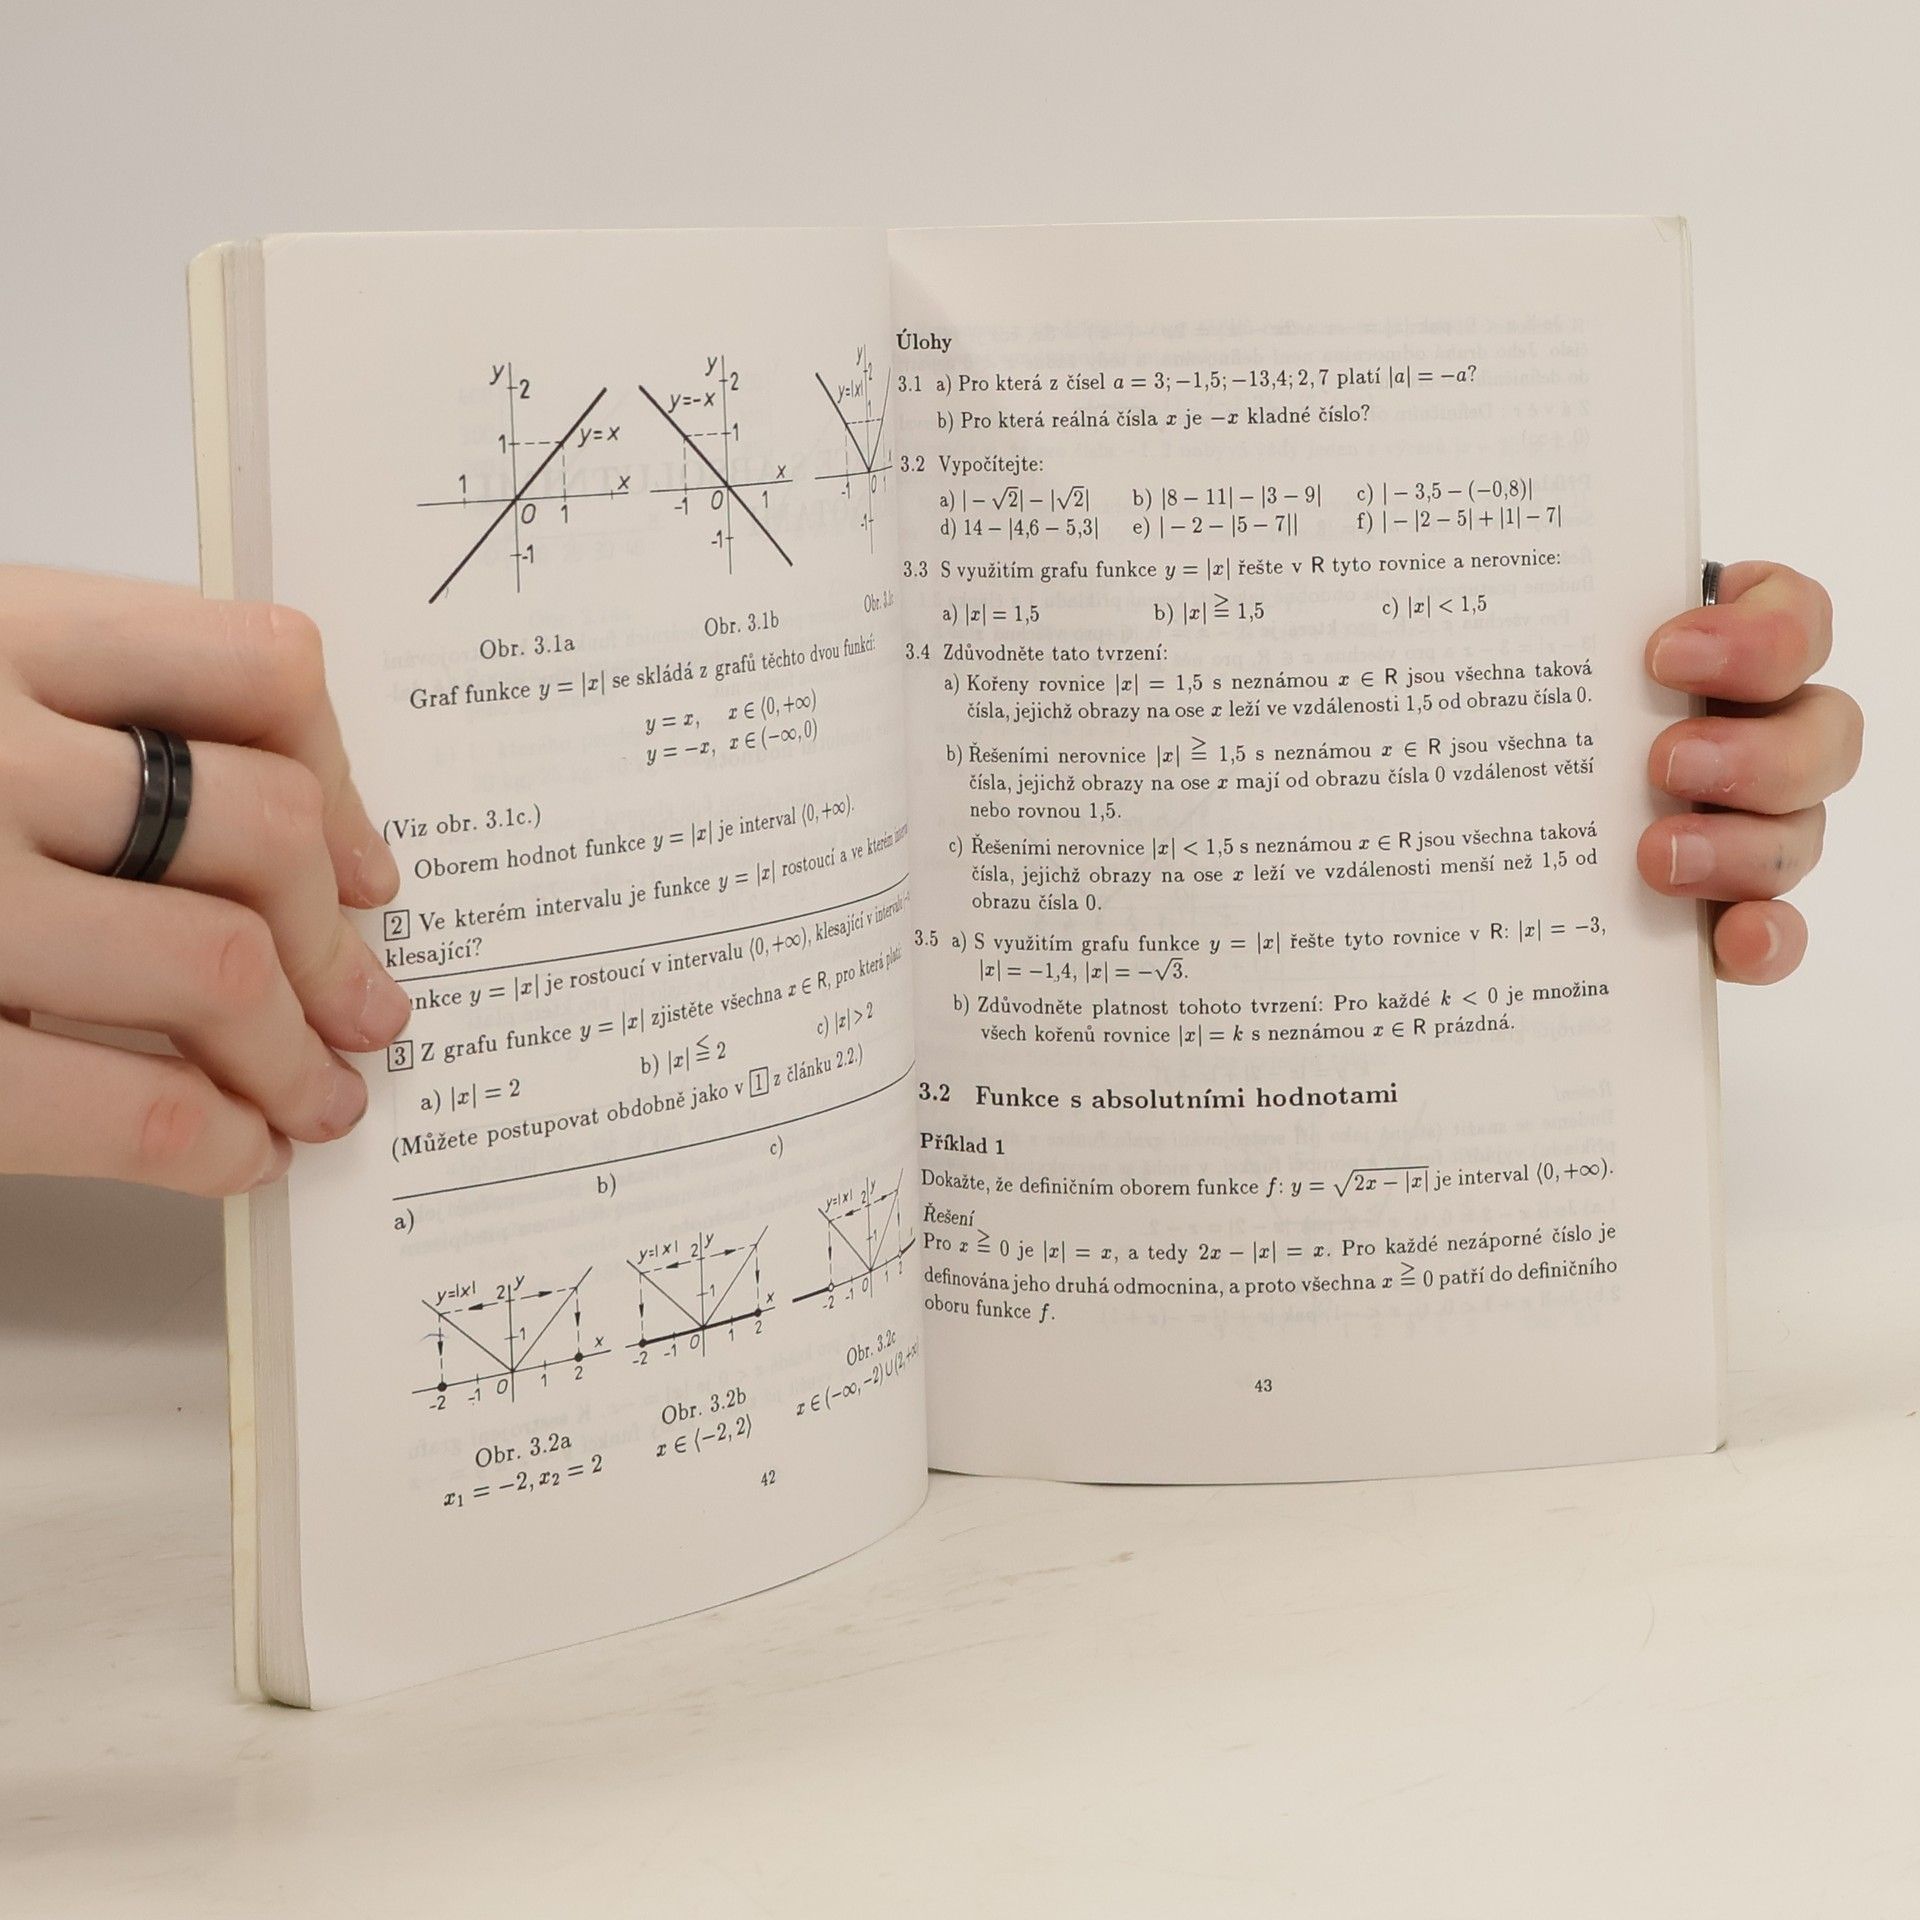 y
2
1
y=x
1
x
0
1
-1
Obr. 3.1a
y
2
y=-x
1
x
-1
0
1
-1
Obr. 3.1b
y
2
y=|x|
1
-1
0
1
-1
Obr.
Graf funkce y = |x| se skládá z grafů těchto dvou funkcí:
y = x, x ∈ ⟨0, +∞)
y = −x, x ∈ (−∞, 0)
(Viz obr. 3.1c.)
Oborem hodnot funkce y = |x| je interval ⟨0, +∞).
2 Ve kterém intervalu je funkce y = |x| rostoucí a ve kterém
klesající?
nkce y = |x| je rostoucí v intervalu ⟨0, +∞), klesající v intervalu
3 Z grafu funkce y = |x| zjistěte všechna x ∈ R, pro která platí:
a) |x| = 2 b) |x| ≦ 2 c) |x| > 2
(Můžete postupovat obdobně jako v 1 z článku 2.2.)
a) b) c)
y=|x|
2
y
1
x
-2
-1
0
1
2
Obr. 3.2a
x₁ = −2, x₂ = 2
y=|x|
2
y
1
x
-2
-1
0
1
2
Obr. 3.2b
x ∈ ⟨−2, 2⟩
y=|x|
2
y
1
-2
-1
0
1
2
Obr. 3.2c
x ∈ (−∞, −2) ∪ (2, +∞)
42
Úlohy
3.1 a) Pro která z čísel a = 3; −1,5; −13,4; 2,7 platí |a| = −a?
b) Pro která reálná čísla x je −x kladné číslo?
3.2 Vypočítejte:
a) | − √2| − |√2| b) |8 − 11| − |3 − 9| c) | − 3,5 − (−0,8)|
d) 14 − |4,6 − 5,3| e) | − 2 − |5 − 7|| f) | − |2 − 5| + |1| − 7|
3.3 S využitím grafu funkce y = |x| řešte v R tyto rovnice a nerovnice:
a) |x| = 1,5 b) |x| ≧ 1,5 c) |x| < 1,5
3.4 Zdůvodněte tato tvrzení:
a) Kořeny rovnice |x| = 1,5 s neznámou x ∈ R jsou všechna taková
čísla, jejichž obrazy na ose x leží ve vzdálenosti 1,5 od obrazu čísla 0.
b) Řešeními nerovnice |x| ≧ 1,5 s neznámou x ∈ R jsou všechna ta
čísla, jejichž obrazy na ose x mají od obrazu čísla 0 vzdálenost větší
nebo rovnou 1,5.
c) Řešeními nerovnice |x| < 1,5 s neznámou x ∈ R jsou všechna taková
čísla, jejichž obrazy na ose x leží ve vzdálenosti menší než 1,5 od
obrazu čísla 0.
3.5 a) S využitím grafu funkce y = |x| řešte tyto rovnice v R: |x| = −3,
|x| = −1,4, |x| = −√3.
b) Zdůvodněte platnost tohoto tvrzení: Pro každé k < 0 je množina
všech kořenů rovnice |x| = k s neznámou x ∈ R prázdná.
3.2 Funkce s absolutními hodnotami
Příklad 1
Dokažte, že definičním oborem funkce f: y = √(2x − |x|) je interval ⟨0, +∞).
Řešení
Pro x ≧ 0 je |x| = x, a tedy 2x − |x| = x. Pro každé nezáporné číslo je
definována jeho druhá odmocnina, a proto všechna x ≧ 0 patří do definičního
oboru funkce f.
43